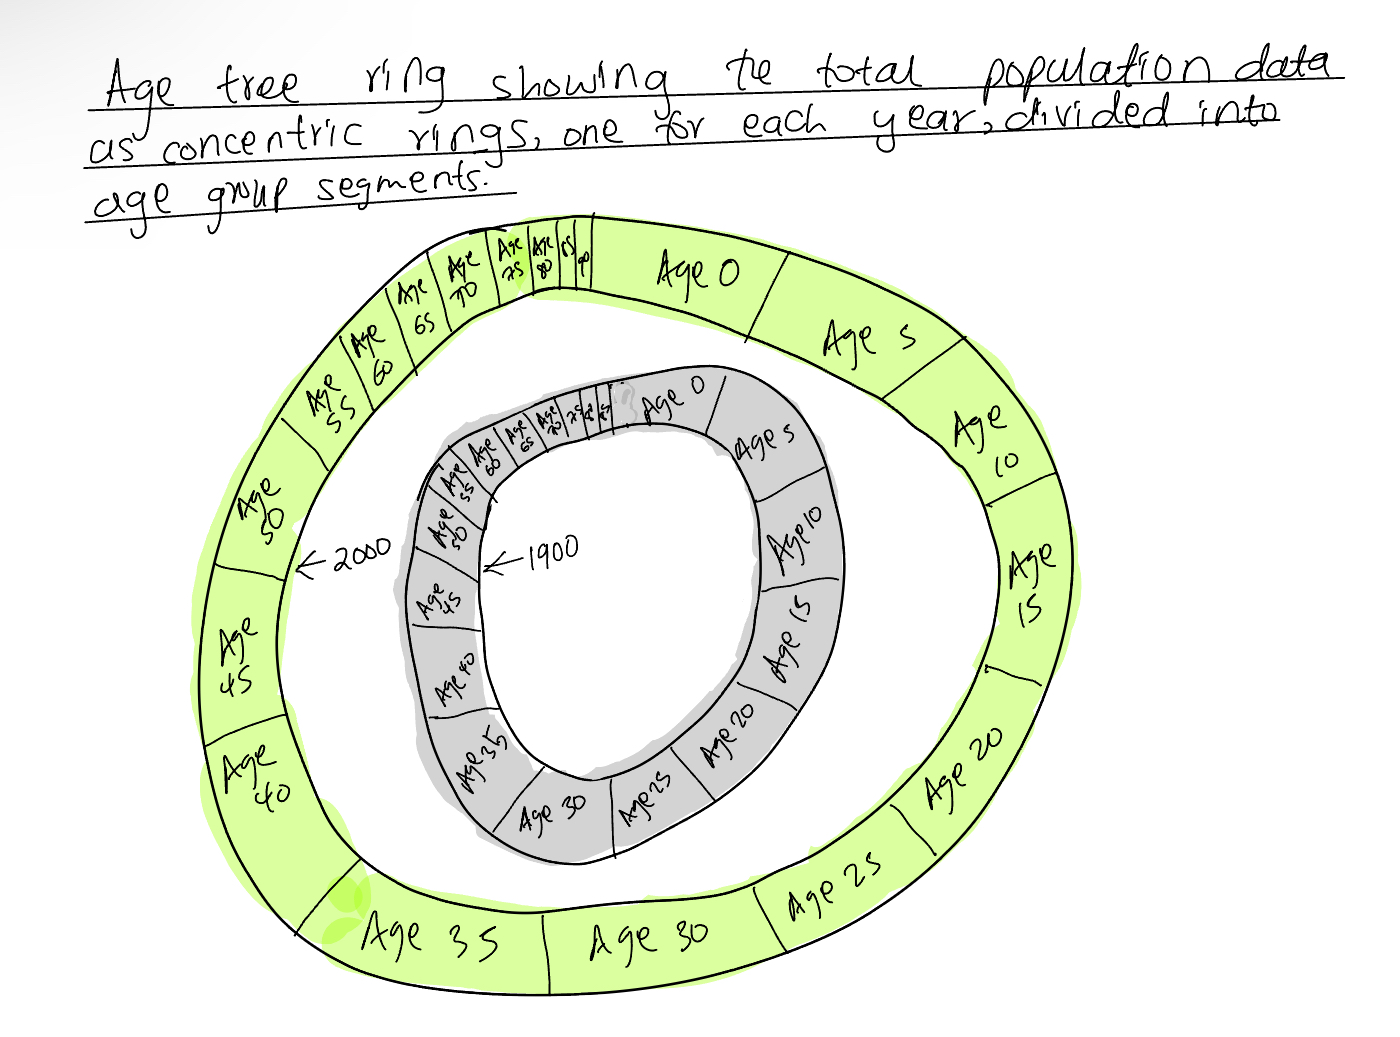 Age tree ring showing the total population data
as concentric rings, one for each year, divided into
age group segments.
Age 0
Age 5
Age 10
Age 15
Age 20
Age 25
Age 30
Age 35
Age 40
Age 45
Age 50
Age 55
Age 60
Age 65
Age 70
Age 75
Age 80
85
90
←2000
Age 0
Age 5
Age 10
Age 15
Age 20
Age 25
Age 30
Age 35
Age 40
Age 45
Age 50
Age 55
Age 60
Age 65
Age 70
75
←1900